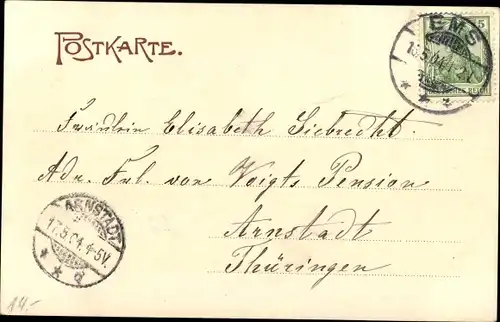 POSTKARTE.
EMS
5
16.5.04.4-5V.
Fräulein Elisabeth Siebrecht.
Adr. Frl. von Voigts Pension
Arnstadt
Thüringen
ARNSTADT
17.5.04.4-5V.
14.-